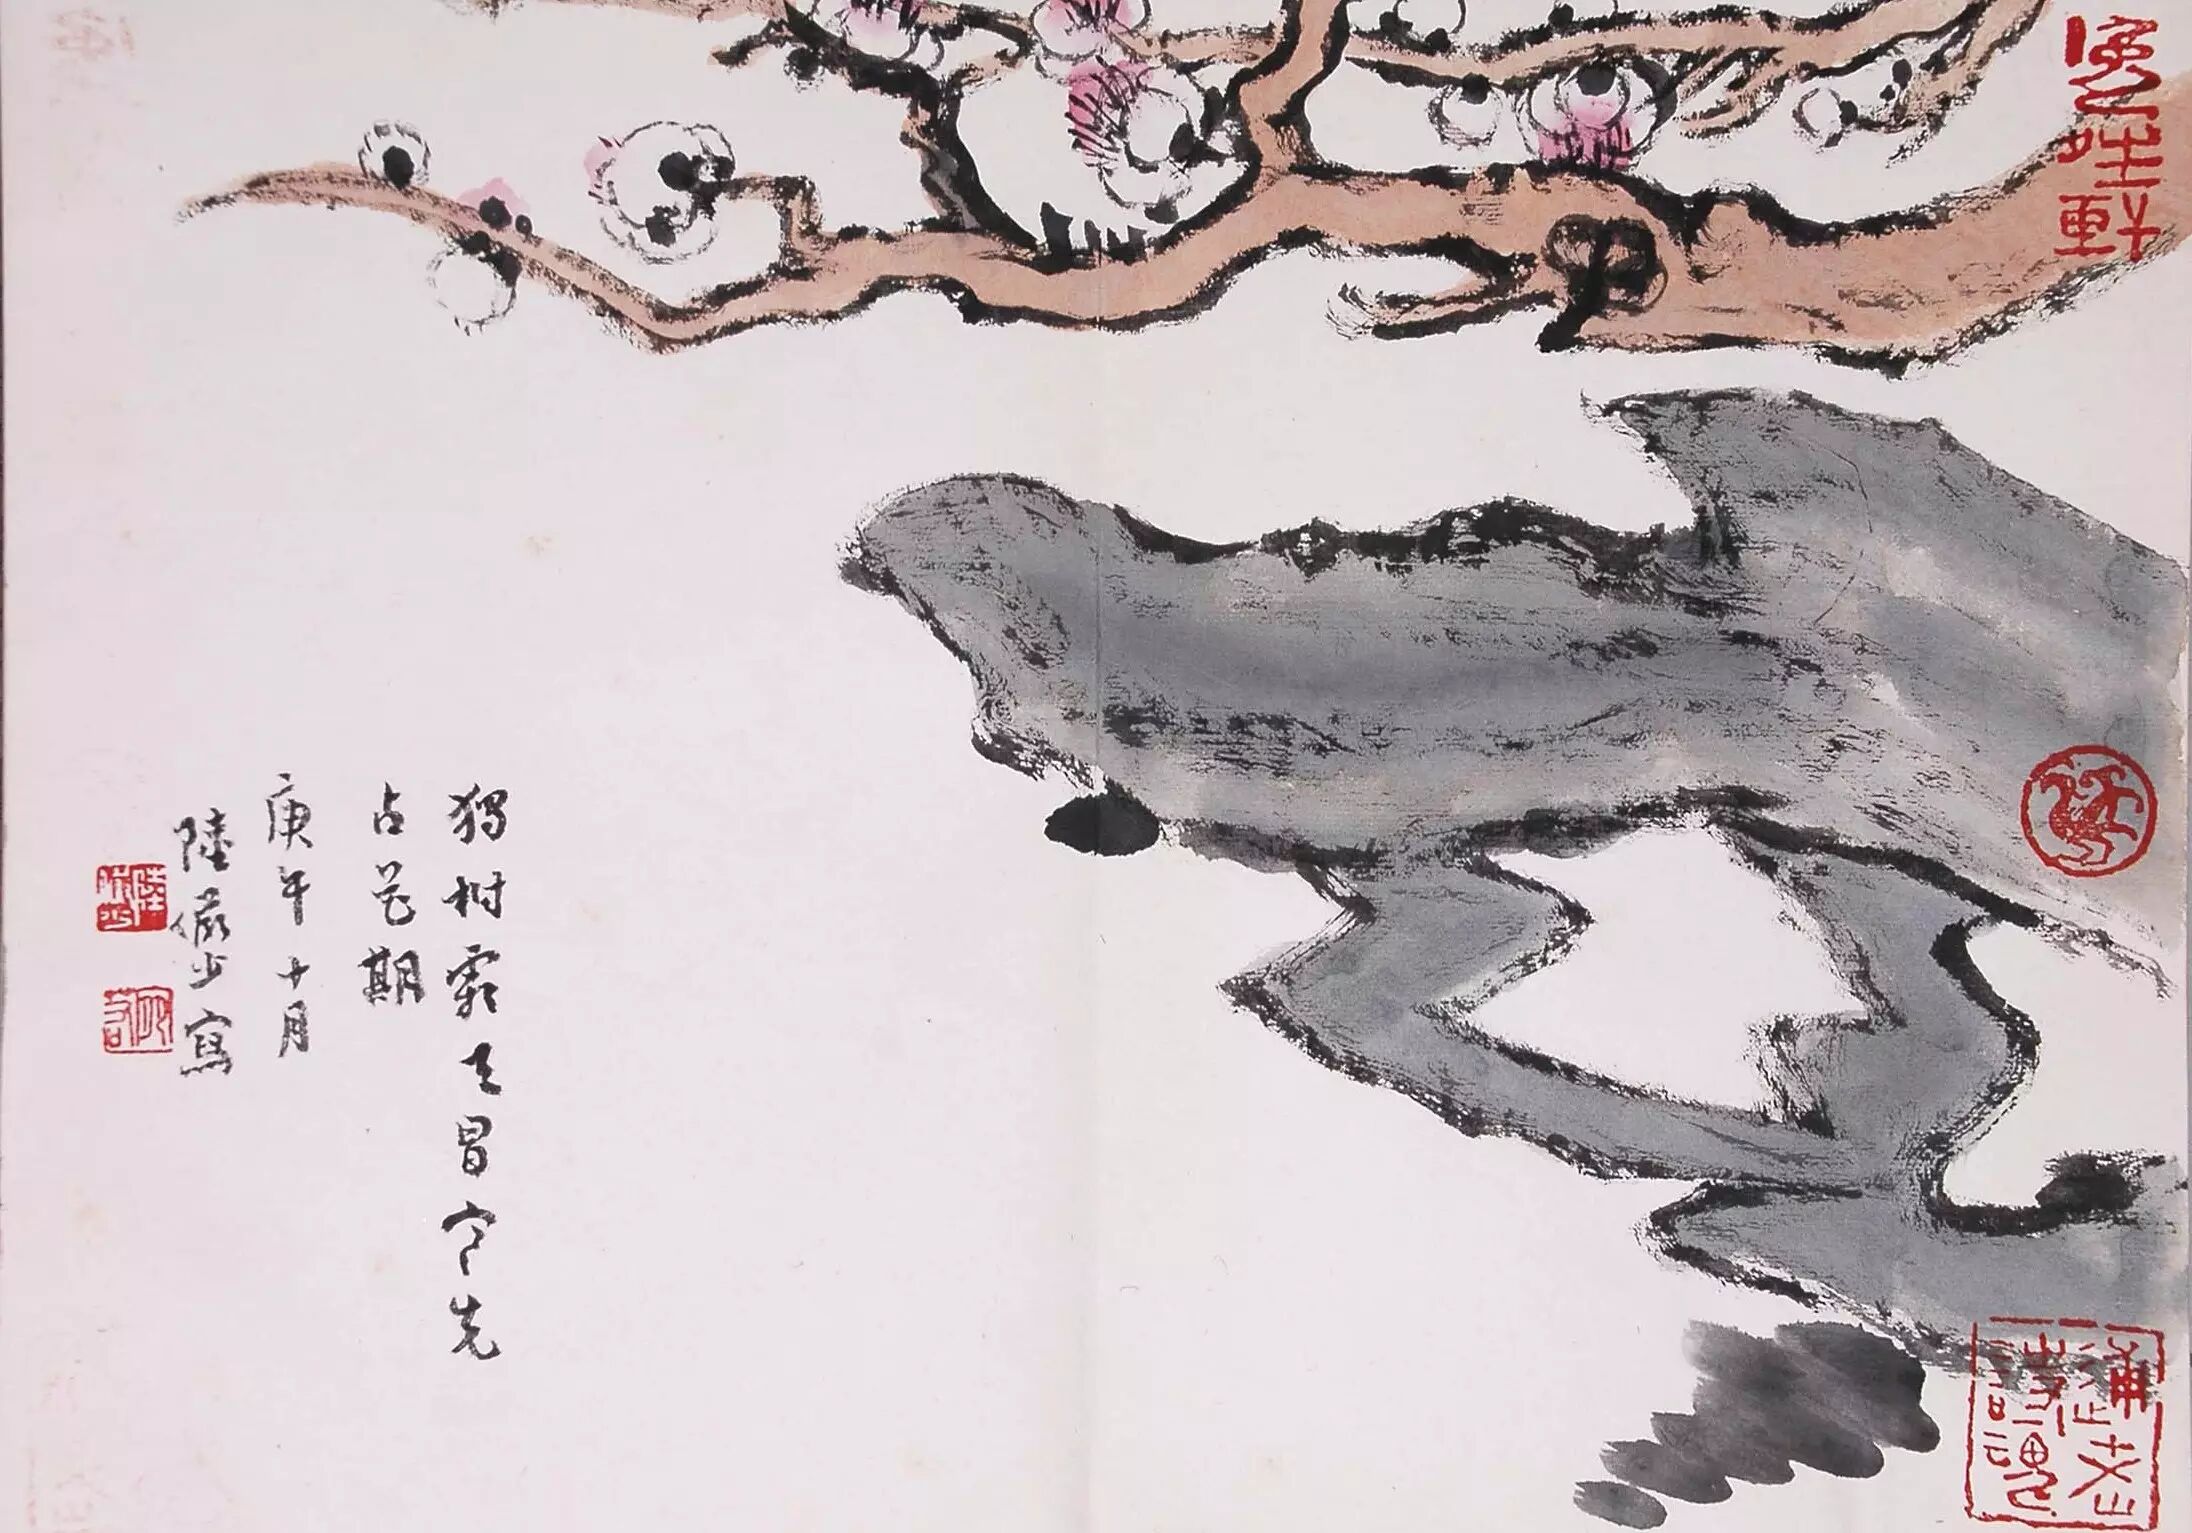 獨樹霜天冒寒先
占花期
庚午十月
陸儼少寫